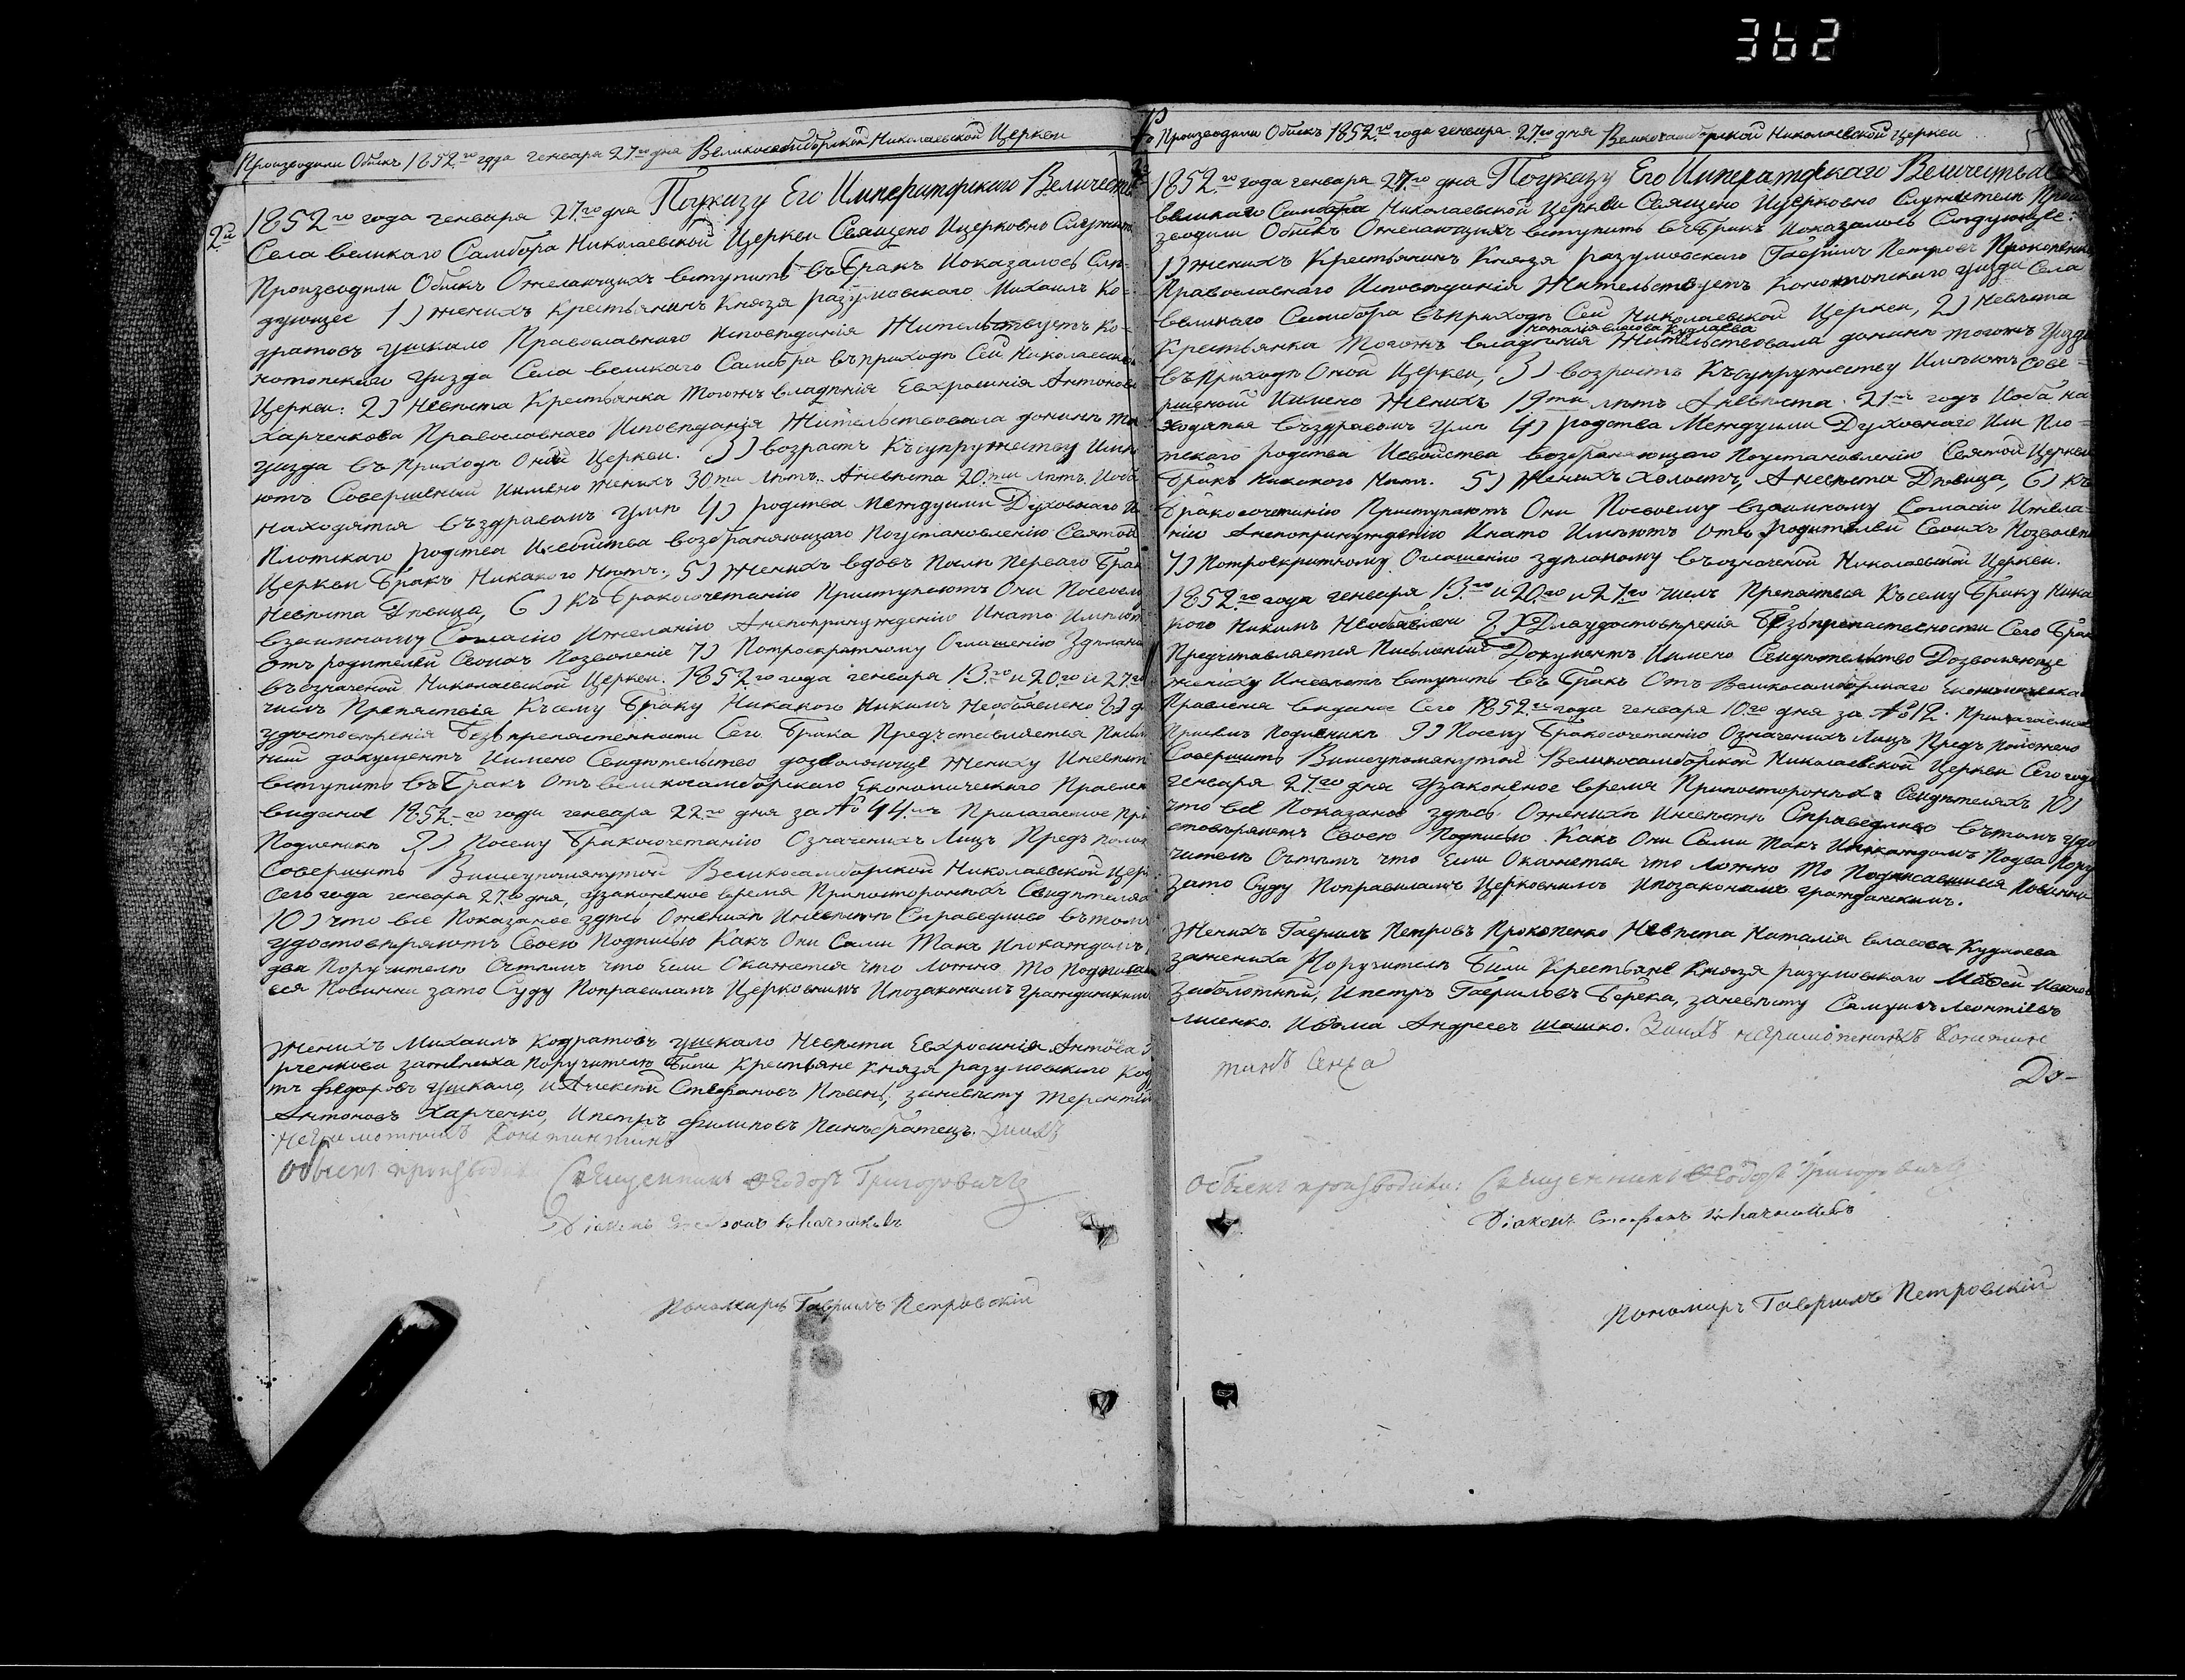 362
Производили Обыскъ 1852го года генваря 27го дня Великосамборской Николаевской Церкви
2й
1852го года генваря 27го дня Поуказу Его Императорскаго Величества
Села великаго Самбора Николаевской Церкви Священо Ицерковно Служит
Производили Обыскъ Ожелающихъ вступить въ Бракъ Иоказалось Слѣ-
дующее 1) женихъ Крестьянинъ Князя разумовского Михаилъ Ко-
дратовъ ушкало Православнаго исповѣданія Жительствуетъ Ко-
нотопскаго уизда Села великаго Самбора въприходѣ Сей Николаевской
Церкви: 2) Невѣста Крестьянка тогожъ владѣнія Евхросинія Антонова
Харченкова Православнаго Исповѣданія Жительствовала донинѣ то
уизда въ приходѣ Оной Церкви. 3) возрастъ Късупружеству Имѣ
ютъ Совершений Имено женихъ 30ти лѣтъ. Аневѣста 20ти лѣтъ, Иоба
находятся въздравомъ умѣ 4) родства Междуими Духовнаго И
Плотскаго родства Исвойства возбраняющаго Поустановленію Святой
Церкви Бракъ Никакого Нѣтъ., 5) Женихъ вдовъ Послѣ Перваго Брак
Невѣста Дѣвица, 6) Къ Бракосочетанію Приступаютъ Они Посвоему
взаимному Согласію Ижеланію Анепопринужденію Инато Имѣют
отъ родителей Своихъ Позволеніе 7) Потроекратному Оглашенію Здѣлано
въозначеной Николаевской Церкви. 1852го года генваря 13го и 20го и 27го
числъ Препятствія Късему Браку Никакого Никимъ Необявлено 8) д
удостовѣренія Безъпрепятственности Сего Брака Предъставляется Писм
ний документъ Имено Свидѣтельство дозволяющее Жениху Иневѣст
вступить въ Бракъ Отъ великосамборского Економического Правлен
виданое 1852-го года генваря 22го дня за № 44.мъ Прилагаемое При
Подленикъ 9) Посему Бракосочетанію Означенихъ Лицъ Предъ поло
Совершить Вишеупомянутой Великосамборской Николаевской Цер
Сего года генваря 27го дня, узаконеное время Припосторонихъ Свидѣтелях
10) что все Показаное здѣсь Оженихѣ Иневѣстѣ Справедливо вътомъ
удостовѣряютъ Своею Подписью Какъ Они Сами Такъ Ипокаждомъ
два Поручителю Сътымъ что Если Окажется что ложно То Подписав
еся Повинни зато Суду Поправиламъ Церковнымъ Ипозаконамъ гражданским
Женихъ Михаилъ Кодратовъ ушкало Невѣста Евхросинія Антонова
рченкова зажениха Поручителю Били Крестьяне Князя разумовского Код
тъ Федоровъ ушкало, иАлексѣй Стефановъ, заневѣсту Терентій
Антоновъ Харченко, Ипетръ филиповъ Панъбратецъ. Знихъ
неграмотнихъ Константинъ
Обыскъ производили Священникъ Феодоръ Григоровичъ
Діаконъ Стефанъ
Пономаръ Гаврилъ Петровскій
Производили Обыскъ 1852го года генваря 27го дня Великосамборской Николаевской Церкви
5
1852го года генваря 27го дня Поуказу Его Императорскаго Величества
великаго Самбора Николаевской Церкви Священо Ицерковно Служители Прои
зводили Обыскъ Ожелающихъ вступить въ Бракъ Иоказалось Слѣдующее:
1) женихъ Крестьянинъ Князя разумовского Гаврилъ Петровъ Прокопенко
Православнаго Исповѣданія Жительствуетъ Конотопскаго уизда Села
великаго Самбора въприходѣ Сей Николаевской Церкви, 2) Невѣста
наталія власова Кудлаева
Крестьянка тогожъ владѣнія Жительствовала донинѣ тогожъ Уизда
въприходѣ Оной Церкви, 3) возрастъ Късупружеству Имѣютъ Сове-
ршений Имено Женихъ 19ти лѣтъ Аневѣста 21нъ годъ Иоба на
ходятся въздравомъ умѣ 4) родства Междуими Духовнаго Или Пло-
тскаго родства Исвойства возбраняющаго Поустановленію Святой Церкви
Бракъ Никакого Нѣтъ. 5) Женихъ холостъ, Аневѣста Дѣвица, 6) Къ
Бракосочетанію Приступаютъ Они Посвоему взаимному Согласію Ижела-
нію Анепопринужденію Инато Имѣютъ Отъ родителей Своихъ Позволен
7) Потроекратному Оглашенію здѣланому въозначеной Николаевской Церкви.
1852го года генваря 13го и 20го и 27го числъ Препятствія Късему Браку Ника
кого Никимъ Необявлено 8) Дляудостовѣренія Безъпрепятственности Сего Брак
Предъставляется Писмений Документъ Имено Свидѣтельство Дозволяюще
жениху Иневѣстѣ вступить въ Бракъ Отъ Великосамборскаго Економическа
Правленія виданое Сего 1852го года генваря 10го дня за №12. Прилагаемое
Присемъ Подленикъ 9) Посему Бракосочетанію Означенихъ Лицъ Предъ положено
Совершить Вишеупомянутой Великосамборской Николаевской Церкви Сего года
генваря 27го дня Узаконеное время Припосторонихъ Свидѣтеляхъ 10)
что все Показаное здѣсь Оженихѣ Иневѣстѣ Справедливо вътомъ удо
стовѣряютъ Своею Подписью Какъ Они Сами Такъ Ипокаждомъ Подва Пору
чителю Сътымъ что Если Окажется что ложно То Подписавшиеся Повинни
зато Суду Поправиламъ Церковнимъ Ипозаконамъ гражданскимъ.
Женихъ Гаврилъ Петровъ Прокопенко Невѣста Наталія власова Кудлаева
зажениха Поручителѣ Били Крестьяне Князя разумовского Мойсей Иванов
Заболотний, Ипетръ Гавриловъ Берека, заневѣсту Самуилъ Леонтіевъ
лисенко. Ифома Андреевъ шашко. Знихъ неграмотнихъ Констан
тинъ
До-
Обыскъ производили: Священникъ Феодоръ Григоровичъ
Діаконъ Стефанъ
Пономаръ Гаврилъ Петровскій